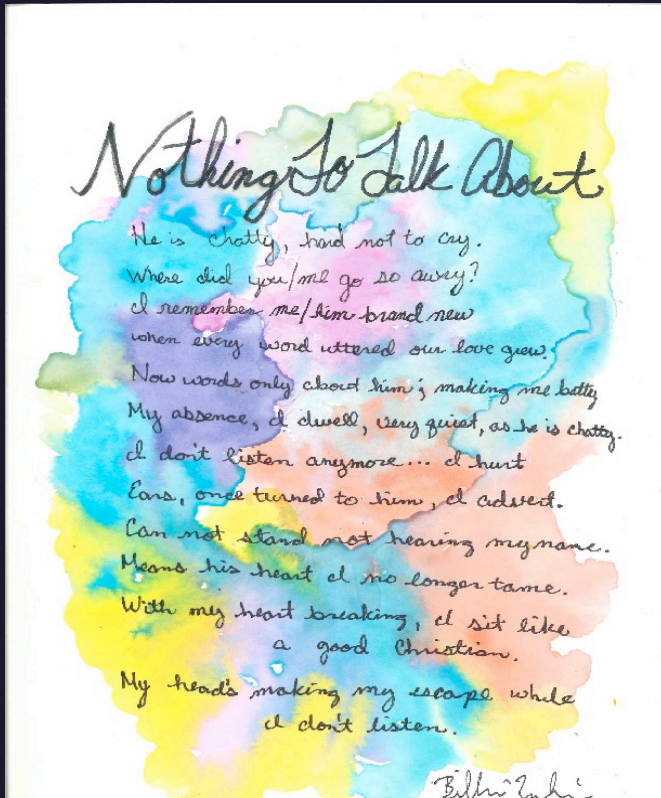 Nothing To Talk About
He is chatty, hard not to cry.
Where did you/me go so awry?
I remember me/him brand new
when every word uttered our love grew.
Now words only about him; making me batty
My absence, I dwell, very quiet, as he is chatty.
I don't listen anymore... I hurt
Ears, once turned to him, I advert.
Can not stand not hearing my name.
Means his heart I no longer tame.
With my heart breaking, I sit like
a good Christian.
My head's making my escape while
I don't listen.